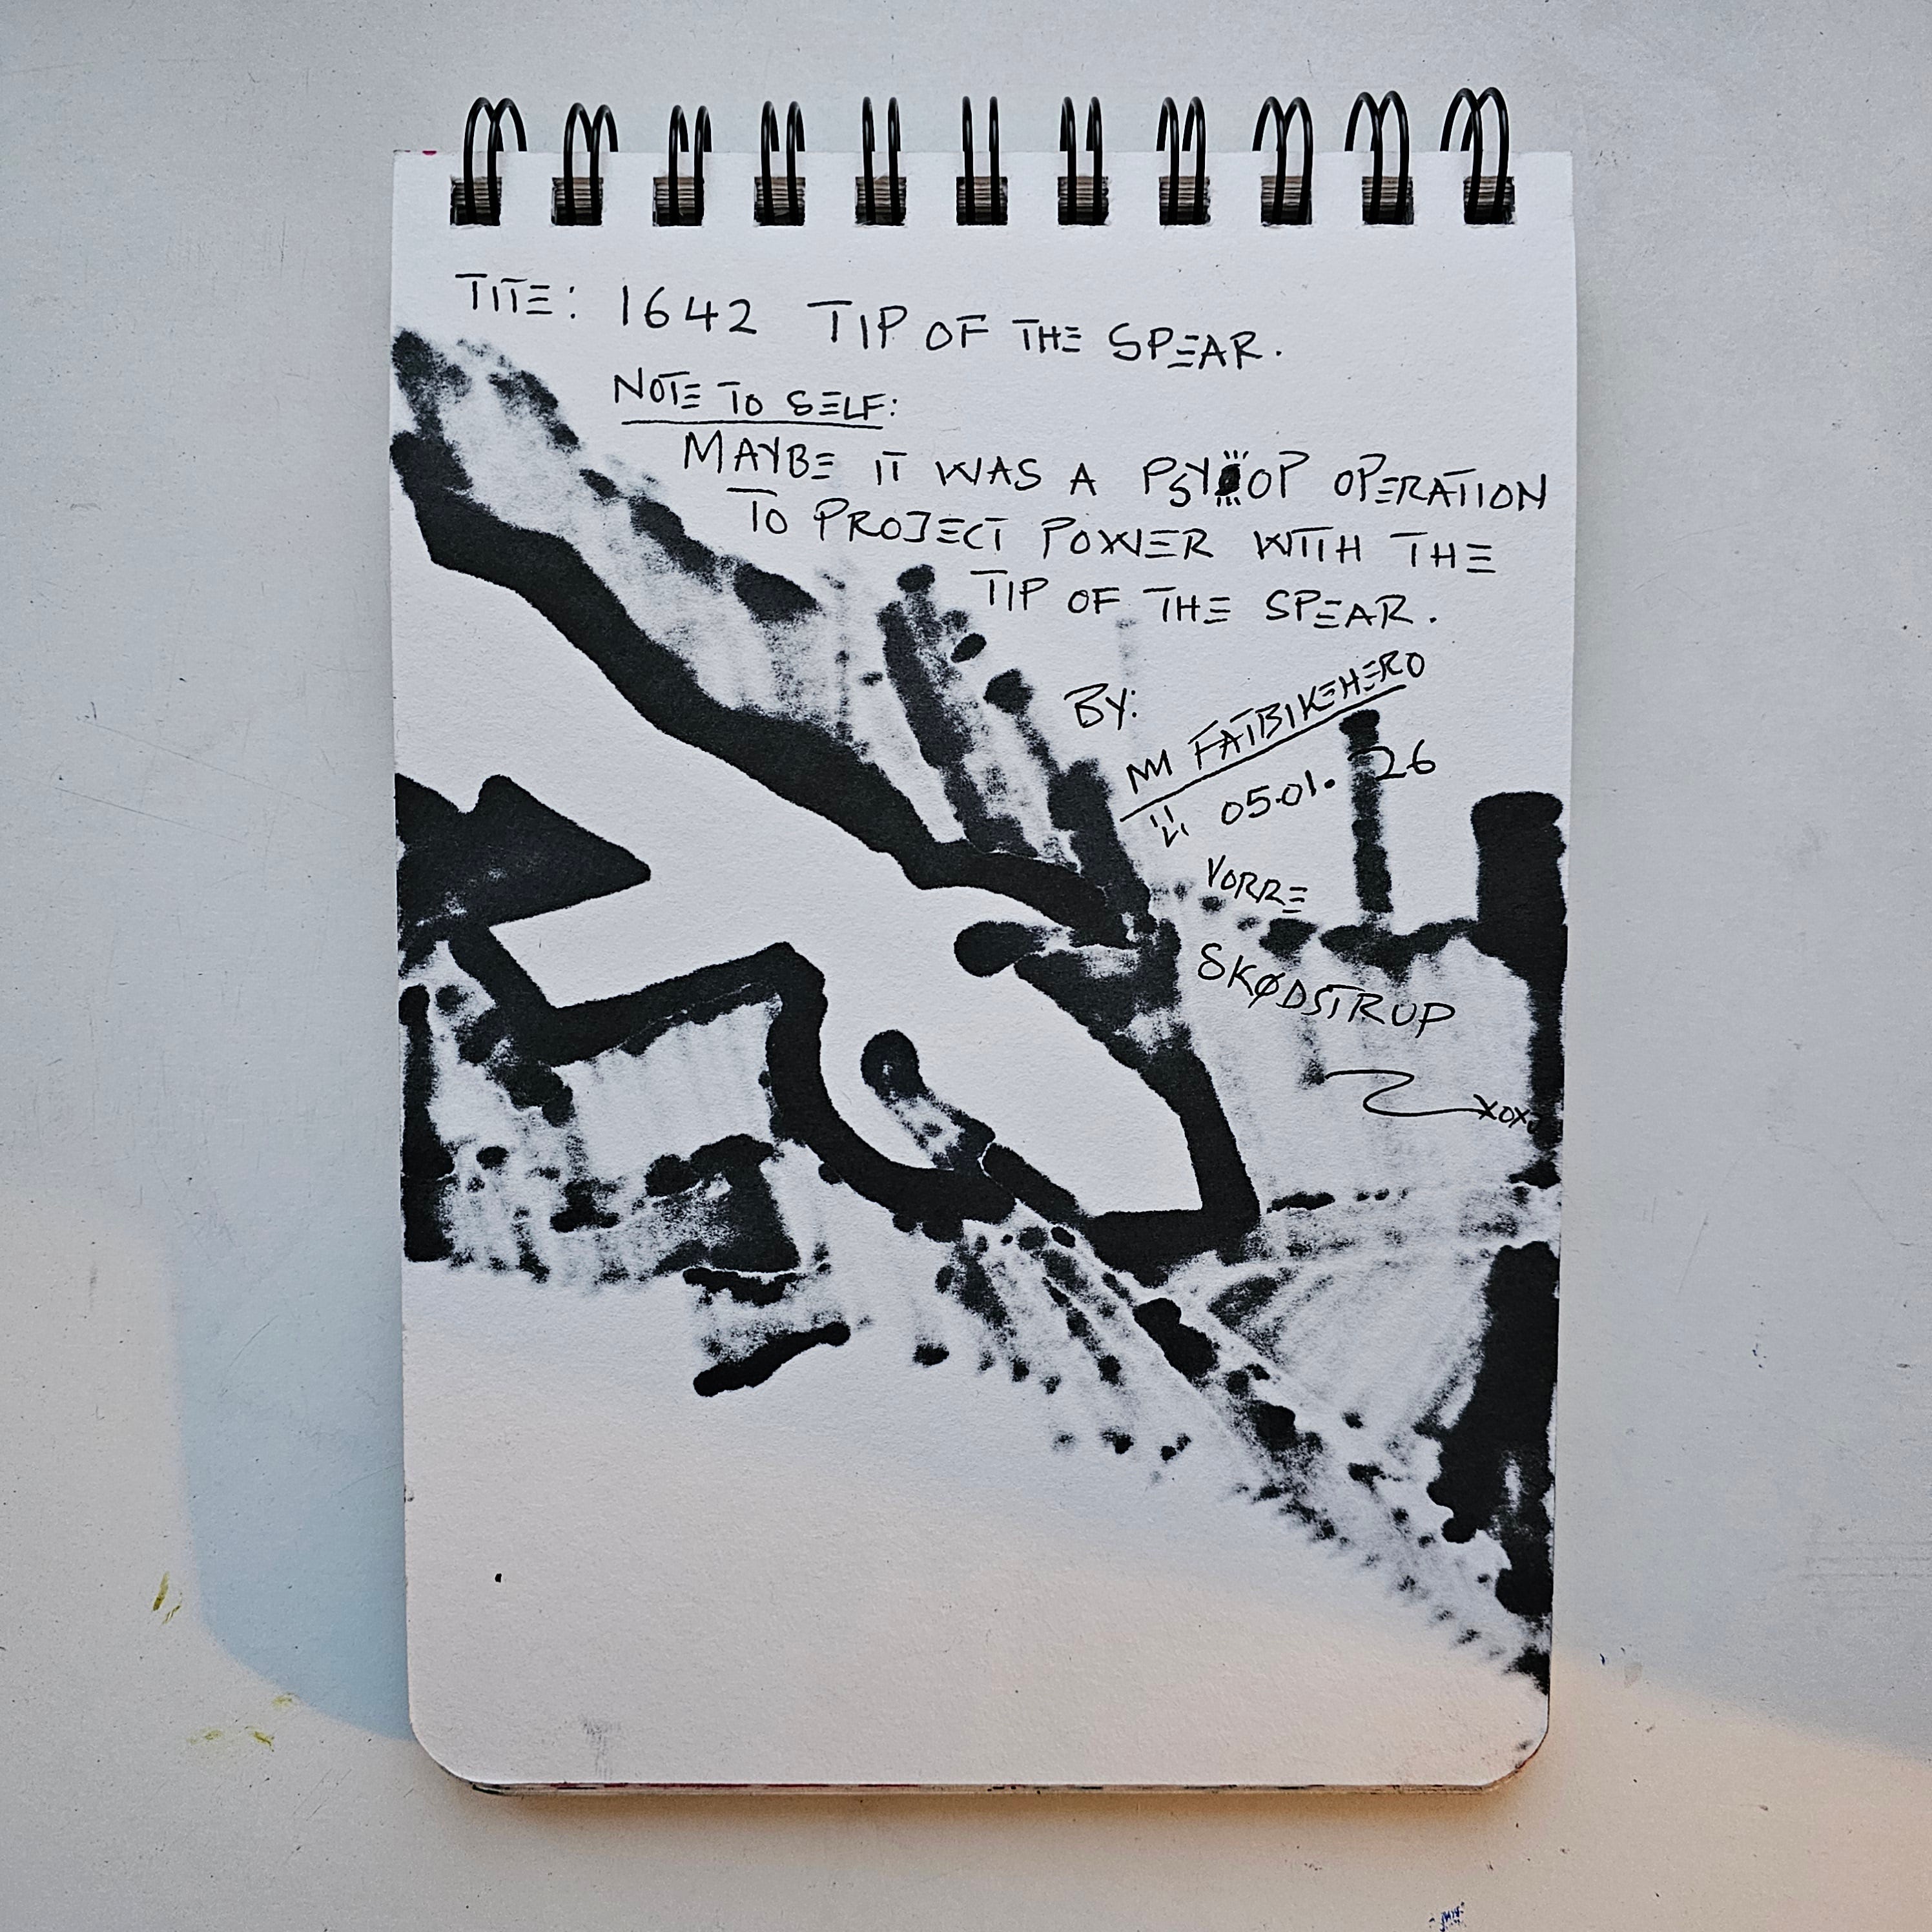 TITE: 1642 TIP OF THE SPEAR.
NOTE TO SELF:
MAYBE IT WAS A PSYOP OPERATION
TO PROJECT POWER WITH THE
TIP OF THE SPEAR.
BY:
FATBIKEHERO
05.01.26
VORRE
SKØDSTRUP
XOXO